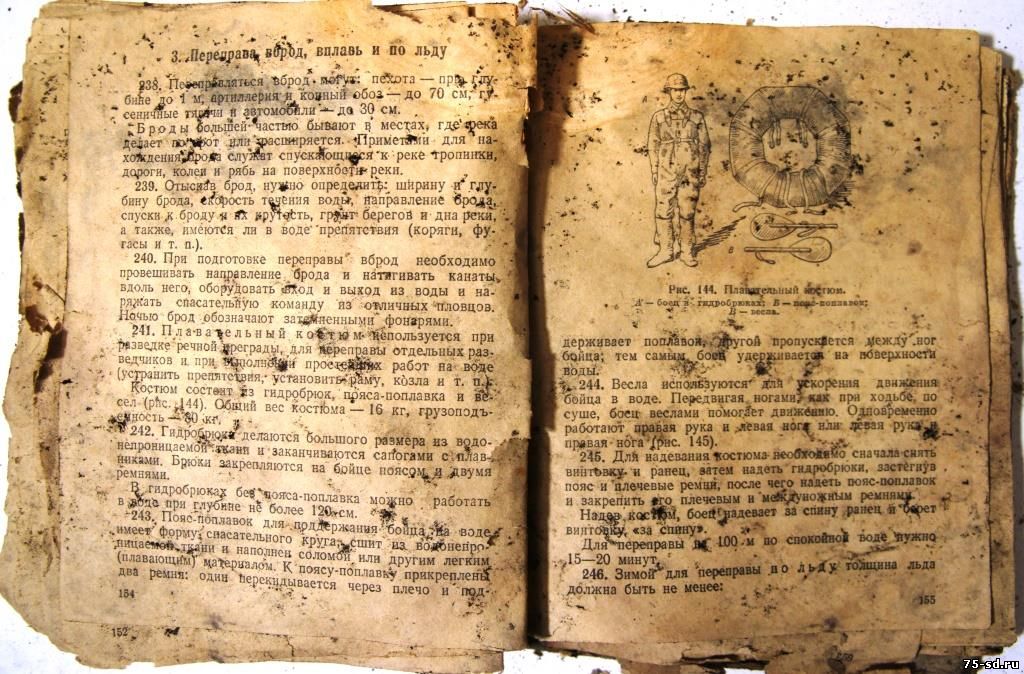 3. Переправа вброд, вплавь и по льду
238. Переправляться вброд могут: пехота — при глу-
бине до 1 м, артиллерия и конный обоз — до 70 см, гу-
сеничные тягачи и автомобили — до 30 см.
Броды большей частью бывают в местах, где река
делает поворот или расширяется. Приметами для на-
хождения брода служат спускающиеся к реке тропинки,
дороги, колеи и рябь на поверхности реки.
239. Отыскав брод, нужно определить: ширину и глу-
бину брода, скорость течения воды, направление брода,
спуски к броду и их крутость, грунт берегов и дна реки,
а также, имеются ли в воде препятствия (коряги, фу-
гасы и т. п.).
240. При подготовке переправы вброд необходимо
провешивать направление брода и натягивать канаты
вдоль него, оборудовать вход и выход из воды и на-
ряжать спасательную команду из отличных пловцов.
Ночью брод обозначают затемненными фонарями.
241. Плавательный костюм используется при
разведке речной преграды, для переправы отдельных раз-
ведчиков и при выполнении простейших работ на воде
(устранить препятствия, установить раму, козла и т. п.).
Костюм состоит из гидробрюк, пояса-поплавка и ве-
сел (рис. 144). Общий вес костюма — 16 кг, грузоподъ-
емность — 80 кг.
242. Гидробрюки делаются большого размера из водо-
непроницаемой ткани и заканчиваются сапогами с плав-
никами. Брюки закрепляются на бойце поясом и двумя
ремнями.
В гидробрюках без пояса-поплавка можно работать
в воде при глубине не более 120 см.
243. Пояс-поплавок для поддержания бойца на воде
имеет форму спасательного круга; сшит из водонепро-
ницаемой ткани и наполнен соломой или другим легким
(плавающим) материалом. К поясу-поплавку прикреплены
два ремня: один перекидывается через плечо и под-
154
152
А
Б
В
Рис. 144. Плавательный костюм.
А — боец в гидробрюках; Б — пояс-поплавок;
В — весла.
держивает поплавок, другой пропускается между ног
бойца; тем самым боец удерживается на поверхности
воды.
244. Весла используются для ускорения движения
бойца в воде. Передвигая ногами, как при ходьбе по
суше, боец веслами помогает движению. Одновременно
работают правая рука и левая нога или левая рука и
правая нога (рис. 145).
245. Для надевания костюма необходимо сначала снять
винтовку и ранец, затем надеть гидробрюки, застегнув
пояс и плечевые ремни, после чего надеть пояс-поплавок
и закрепить его плечевым и междуножным ремнями.
Надев костюм, боец надевает за спину ранец и берет
винтовку „за спину“.
Для переправы на 100 м по спокойной воде нужно
15—20 минут.
246. Зимой для переправы по льду толщина льда
должна быть не менее:
155
75-sd.ru